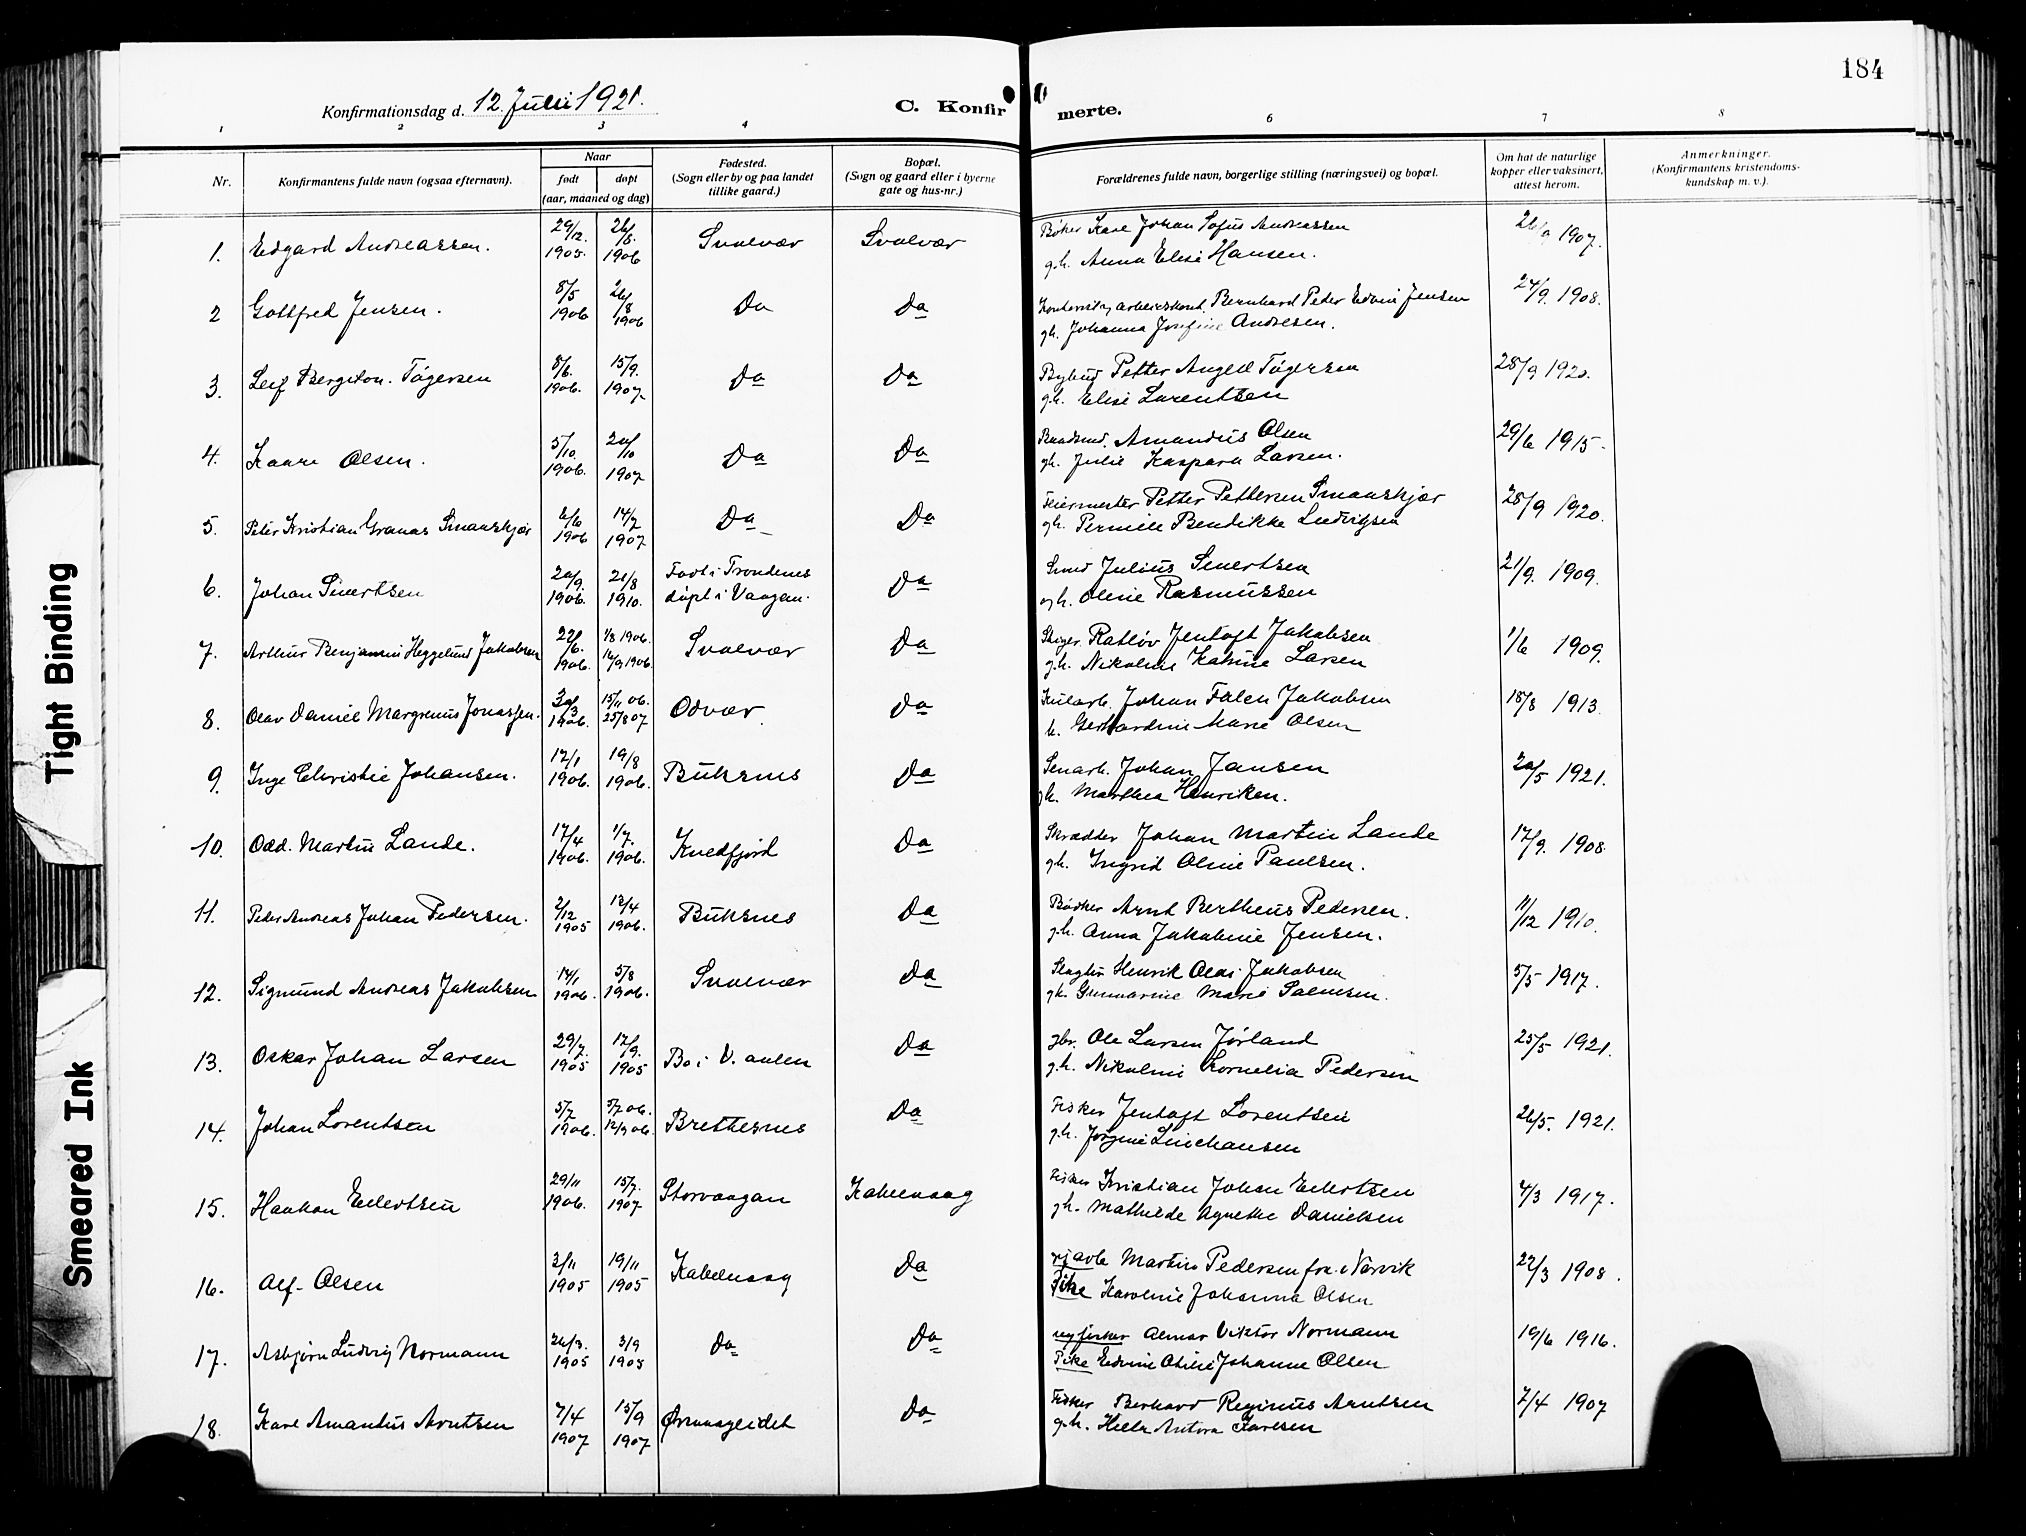 184
Konfirmationsdag d. 12. Juli 1921.
C. Konfirmerte.
1 2 3 4 6 7 8
Nr.
Konfirmantens fulde navn (ogsaa efternavn).
Naar
født døpt
(aar, maaned og dag)
Fødested.
(Sogn eller by og paa landet
tillike gaard.)
Bopæl.
(Sogn og gaard eller i byerne
gate og hus-nr.)
Forældrenes fulde navn, borgerlige stilling (næringsvei) og bopæl.
Om hat de naturlige
kopper eller vaksinert,
attest herom.
Anmerkninger.
(Konfirmantens kristendoms-
kundskap m. v.).
1. Edgard Andreassen. 29/12. 1905. 26/8. 1906 Svolvær Svolvær Bøker Karl Johan Sofus Andreassen 1907.
g.h. Anna Elise Hansen.
2 Gottfred Jensen. 8/5 1906 26/8 1906 Da Da Bernhard Peder Edvin Jensen 24/9. 1908.
gh. Johanna Josefine Andresen.
3. Leif Bergiton. Tøgersen 8/6. 1906. 15/9. 1907. Da Da Bybud Petter Angell Tøgersen 28/9 1920.
g.h. Elise Lorentsen
4. Kaare Olsen. 5/10. 1906. 20/10 1907 Da Da Amandus Olsen 29/6 1915.
gh. Julie Kaspara Larsen.
5. Peter Kristian Granas Smaaskjær 6/6 1906 14/7 1907 Da Da Feiermester Petter Pettersen Smaaskjær 28/9 1920.
gh. Pernille Bendikke Ludvigsen
6. Johan Sivertsen 20/9. 1906. 21/8 1910. Født i Trondenes Da Smed Julius Sivertsen 21/9. 1909.
døpt i Vaagan. gh. Oline Rasmussen
7. Arthur Benjamin Heggelund Jakobsen 22/6. 1906. 1/8 1906. 16/9 1906. Svolvær Da Jentoft Jakobsen 1/6 1909.
g.h. Nikoline Katrine Larsen
8. Olav Daniel Margenius Jonassen. 30/3 1906. 15/11 06. 25/8 07 Odvær. Da Kularb. Johan Falen Jakobsen 18/8 1913.
h. Gerhardine Marie Olsen
9. Inge Christie Johansen. 17/1 1906. 19/8 1906. Buksnes Da Johan Jansen 20/5 1921.
gh. Marthea Henriksen.
10. Odd. Martin Lande. 17/4 1906. 1/7. 1906. Kvedfjord Da Skrædder Johan Martin Lande 17/9. 1908.
gh. Ingrid Oline Paulsen.
11. Peder Andreas Johan Pedersen. 2/12 1905 12/4 1906. Buksnes Da Bødker Arnt Bertheus Pedersen. 11/12 1910.
g.h. Anna Jakobine Jensen.
12. Sigmund Andreas Jakobsen 14/1 1906. 5/8 1906. Svolvær Da Henrik Olai Jakobsen 5/5 1917.
gh. Marie
13. Oskar Johan Larsen 29/7 1905 17/9. 1905 Bø i V. aalen Da gbr. Ole Larsen Jørland 25/5 1921.
g.h. Nikoline Kornelia Pedersen
14. Johan Lorentsen 5/7 1906. 5/7 06. 12/9 06. Brettesnes Da Fisker Jentoft Lorentsen 26/5. 1921.
g.h. Jørgine
15. Haakon Eilertsen 29/11 1906. 15/7. 1907 Storvaagan Kabelvaag Fisker Kristian Johan Eilertsen 4/3 1917.
gh. Mathilde Agnethe Danielsen
16. Alf Olsen 3/11 1905 19/11 1905 Kabelvaag Da Martin Pedersen fra Narvik 22/3 1908.
Pike Karoline Johanna Olsen
17. Asbjørn Ludvig Normann 26/3. 1905 3/9 1905 Da Da ugf. fisker Almar Viktor Normann 19/6 1916.
Pike Edvine Otilie Johanne Olsen
18. Karl Amandus Arntsen 7/4 1907 15/9 1907 Ørsnvaageidet Da Fisker Berhard Reginus Arntsen 7/4 1907
g.h. Hilda Antora Karlsen
Tight Binding
Smeared Ink